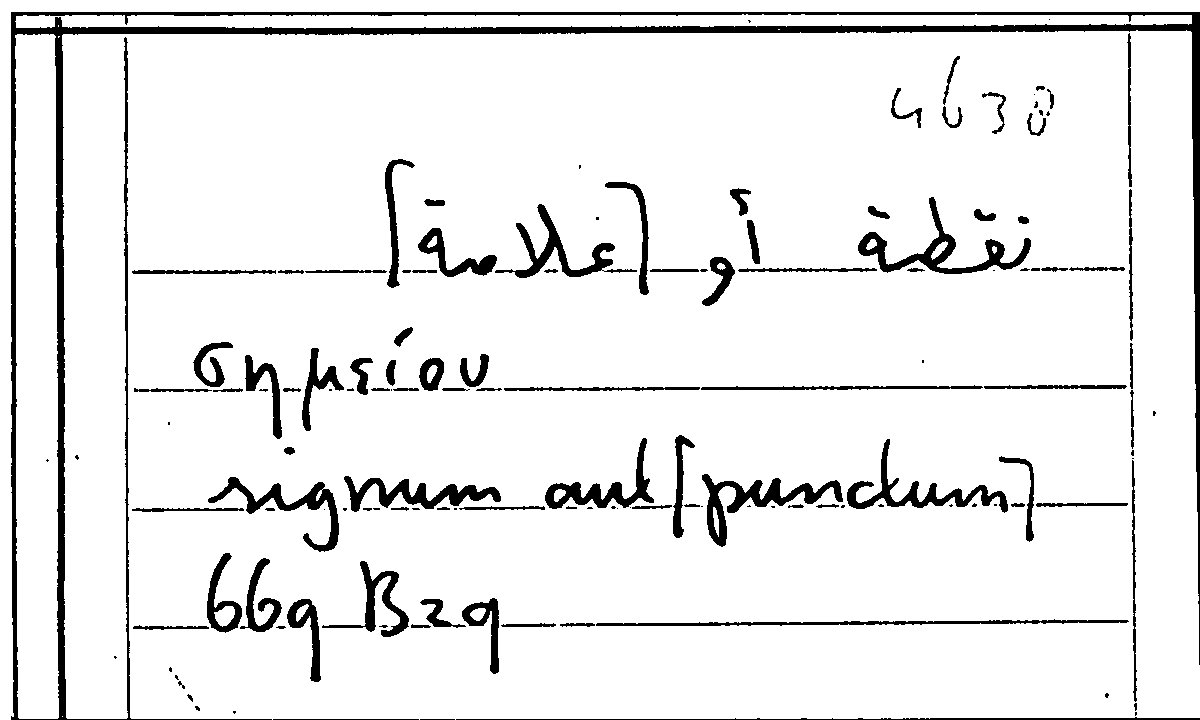 4638
نقطة أو [علامة]
σημείου
signum aut [punctum]
669 B29